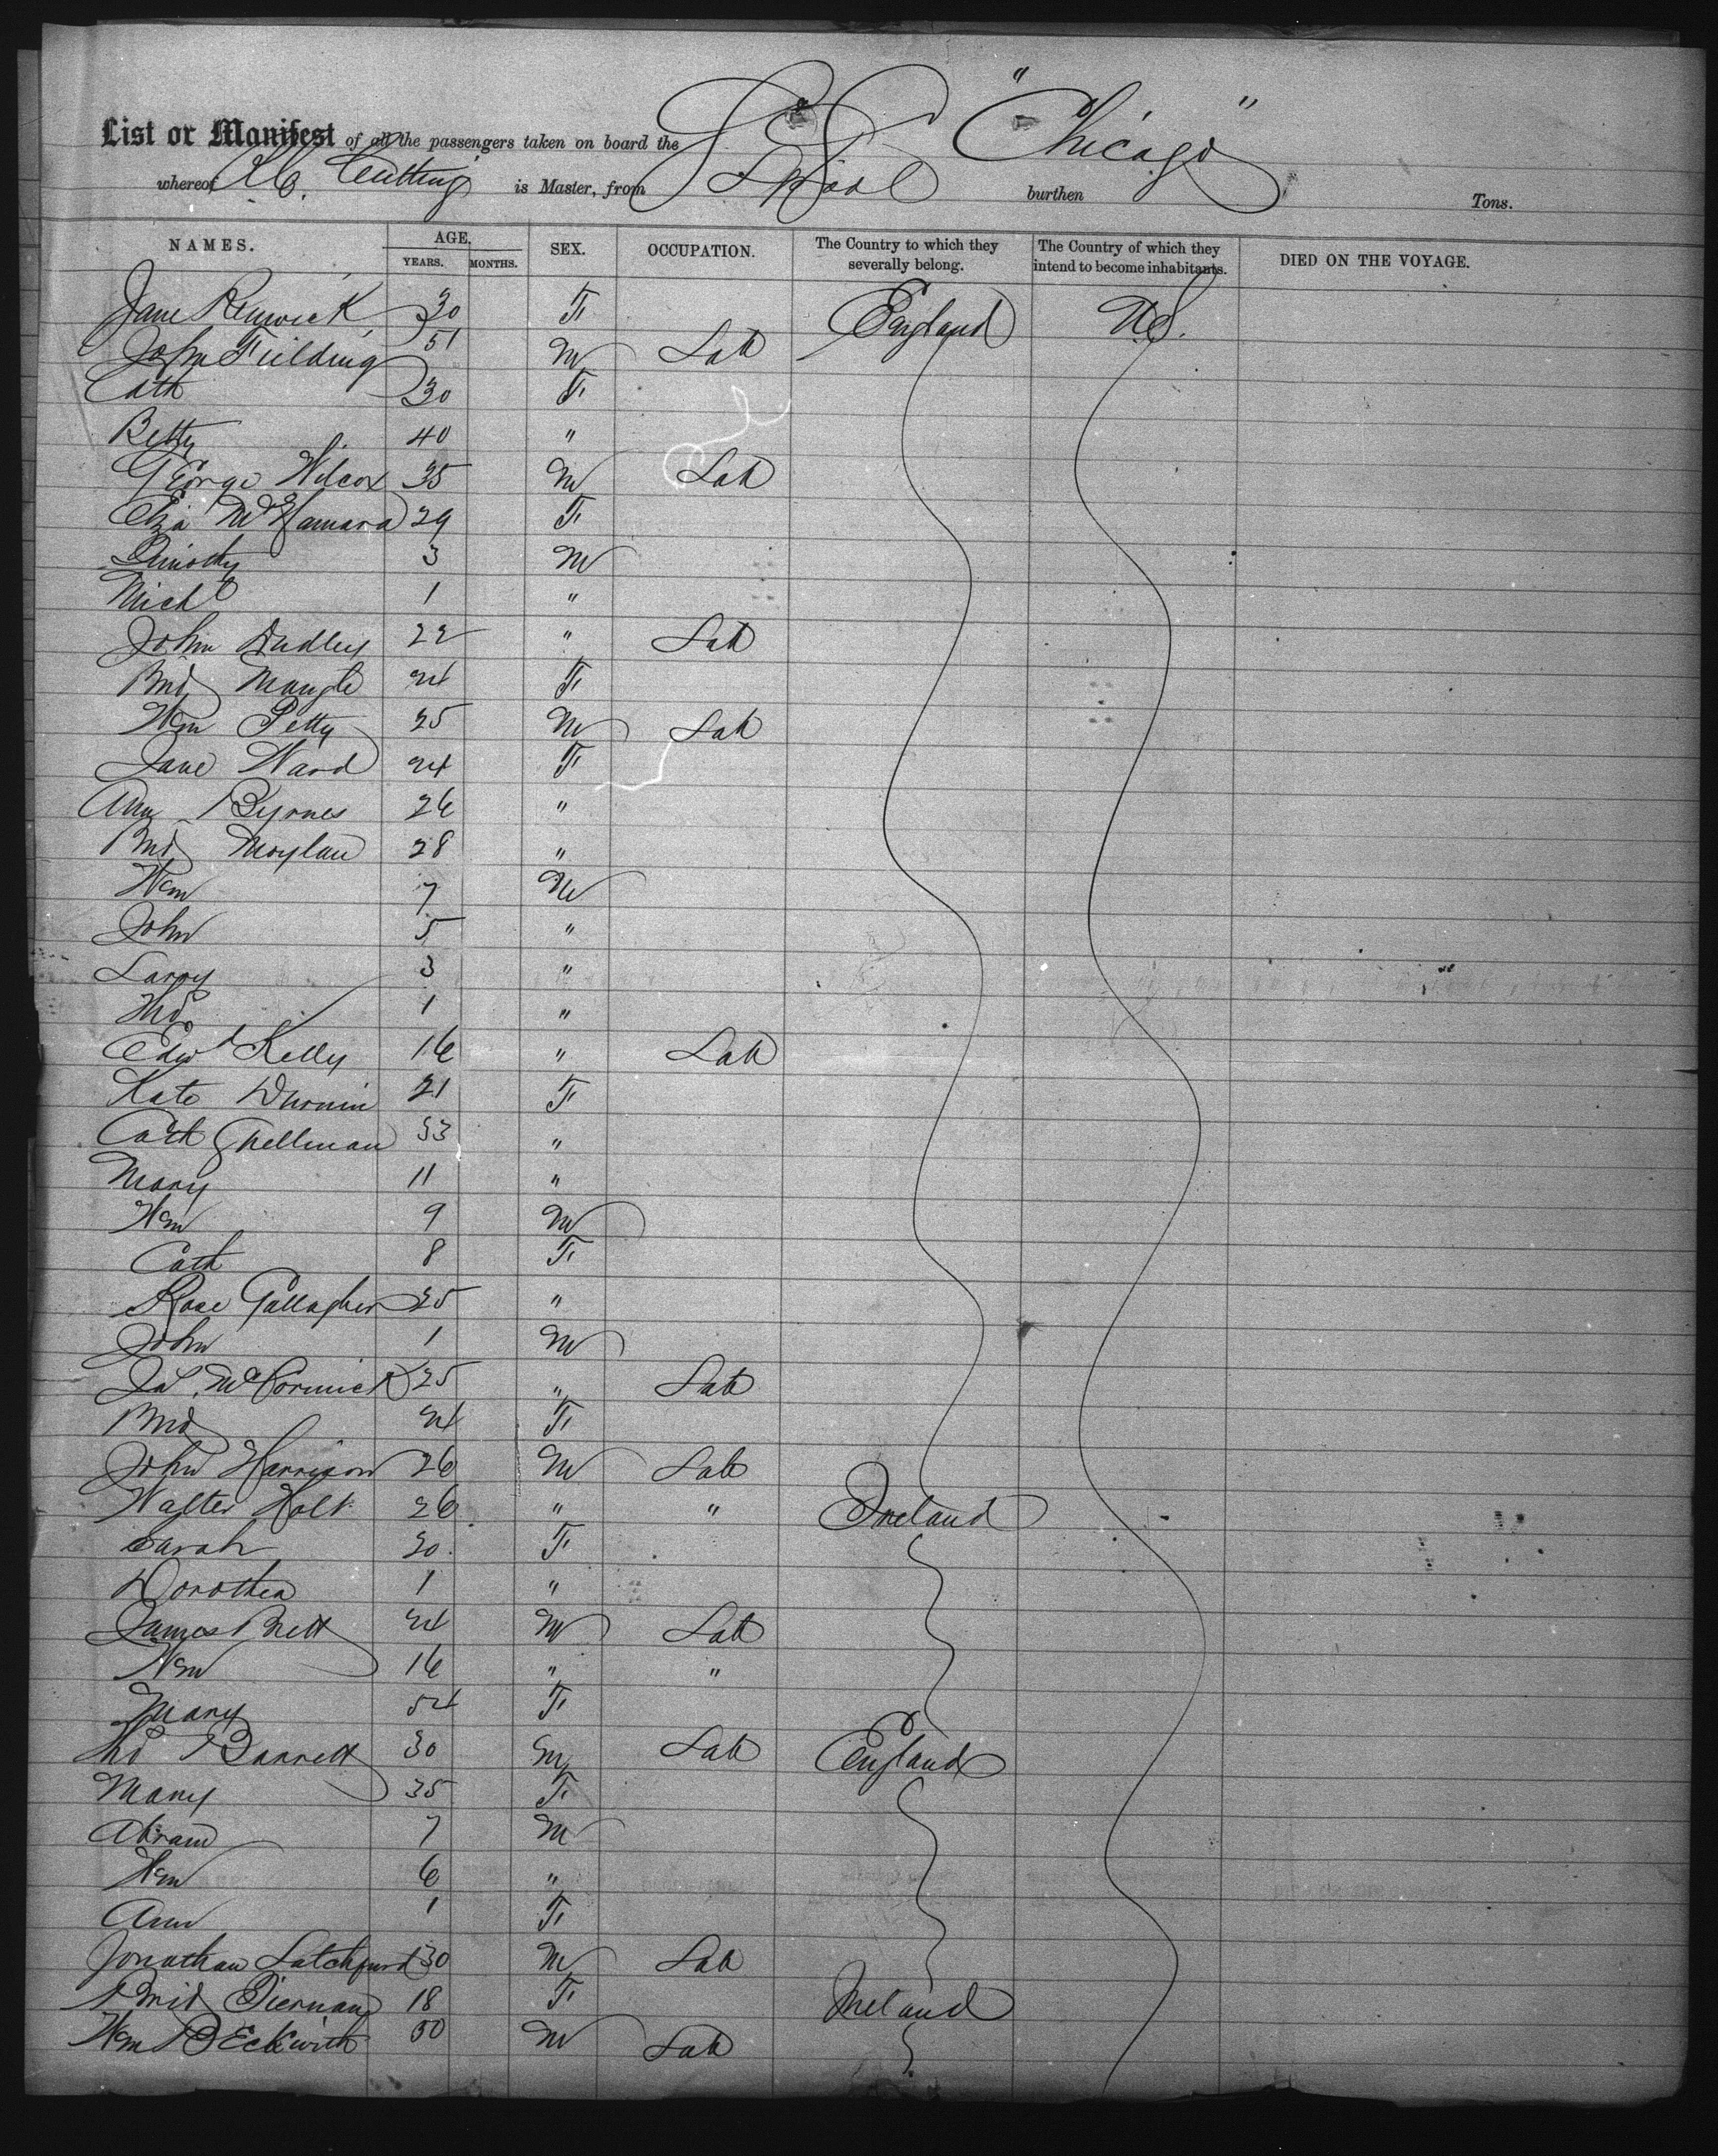 List or Manifest of all the passengers taken on board the S S "Chicago"
whereof Cutting is Master, from L'pool burthen Tons.
NAMES. AGE. YEARS. MONTHS. SEX. OCCUPATION. The Country to which they severally belong. The Country of which they intend to become inhabitants. DIED ON THE VOYAGE.
Jane Renwick 30 F England U.S.
John Fielding 51 M Lab
Cath 30 F
Betty 40 "
George Wilcox 35 M Lab
Eliza McNamara 29 F
Timothy 3 M
Michl 1 "
John Dudley 22 " Lab
Brid 24 F
Wm Petty 25 M Lab
Jane Ward 24 F
Ann Byrnes 26 "
Brid Moylan 28 "
Wm 7 M
John 5 "
Larry 3 "
Thos 1 "
Edwd Kelly 16 " Lab
Kate Durnin 21 F
Cath 33 "
Mary 11 "
Wm 9 M
Cath 8 F
Rose Gallagher 25 "
John 1 M
Jas. McCormick 25 " Lab
Brid 24 F
John Harrison 26 M Lab
Walter Holt 26 " " Ireland
Sarah 20 F
Dorothea 1 "
James Brett 24 M Lab
Wm 16 " "
Mary 54 F
Thos Barrett 30 M Lab England
Mary 35 F
Abram 7 M
Wm 6 "
Ann 1 F
Jonathan Latchford 30 M Lab
Brid Tiernan 18 F Ireland
Wm Beckwith 50 M Lab